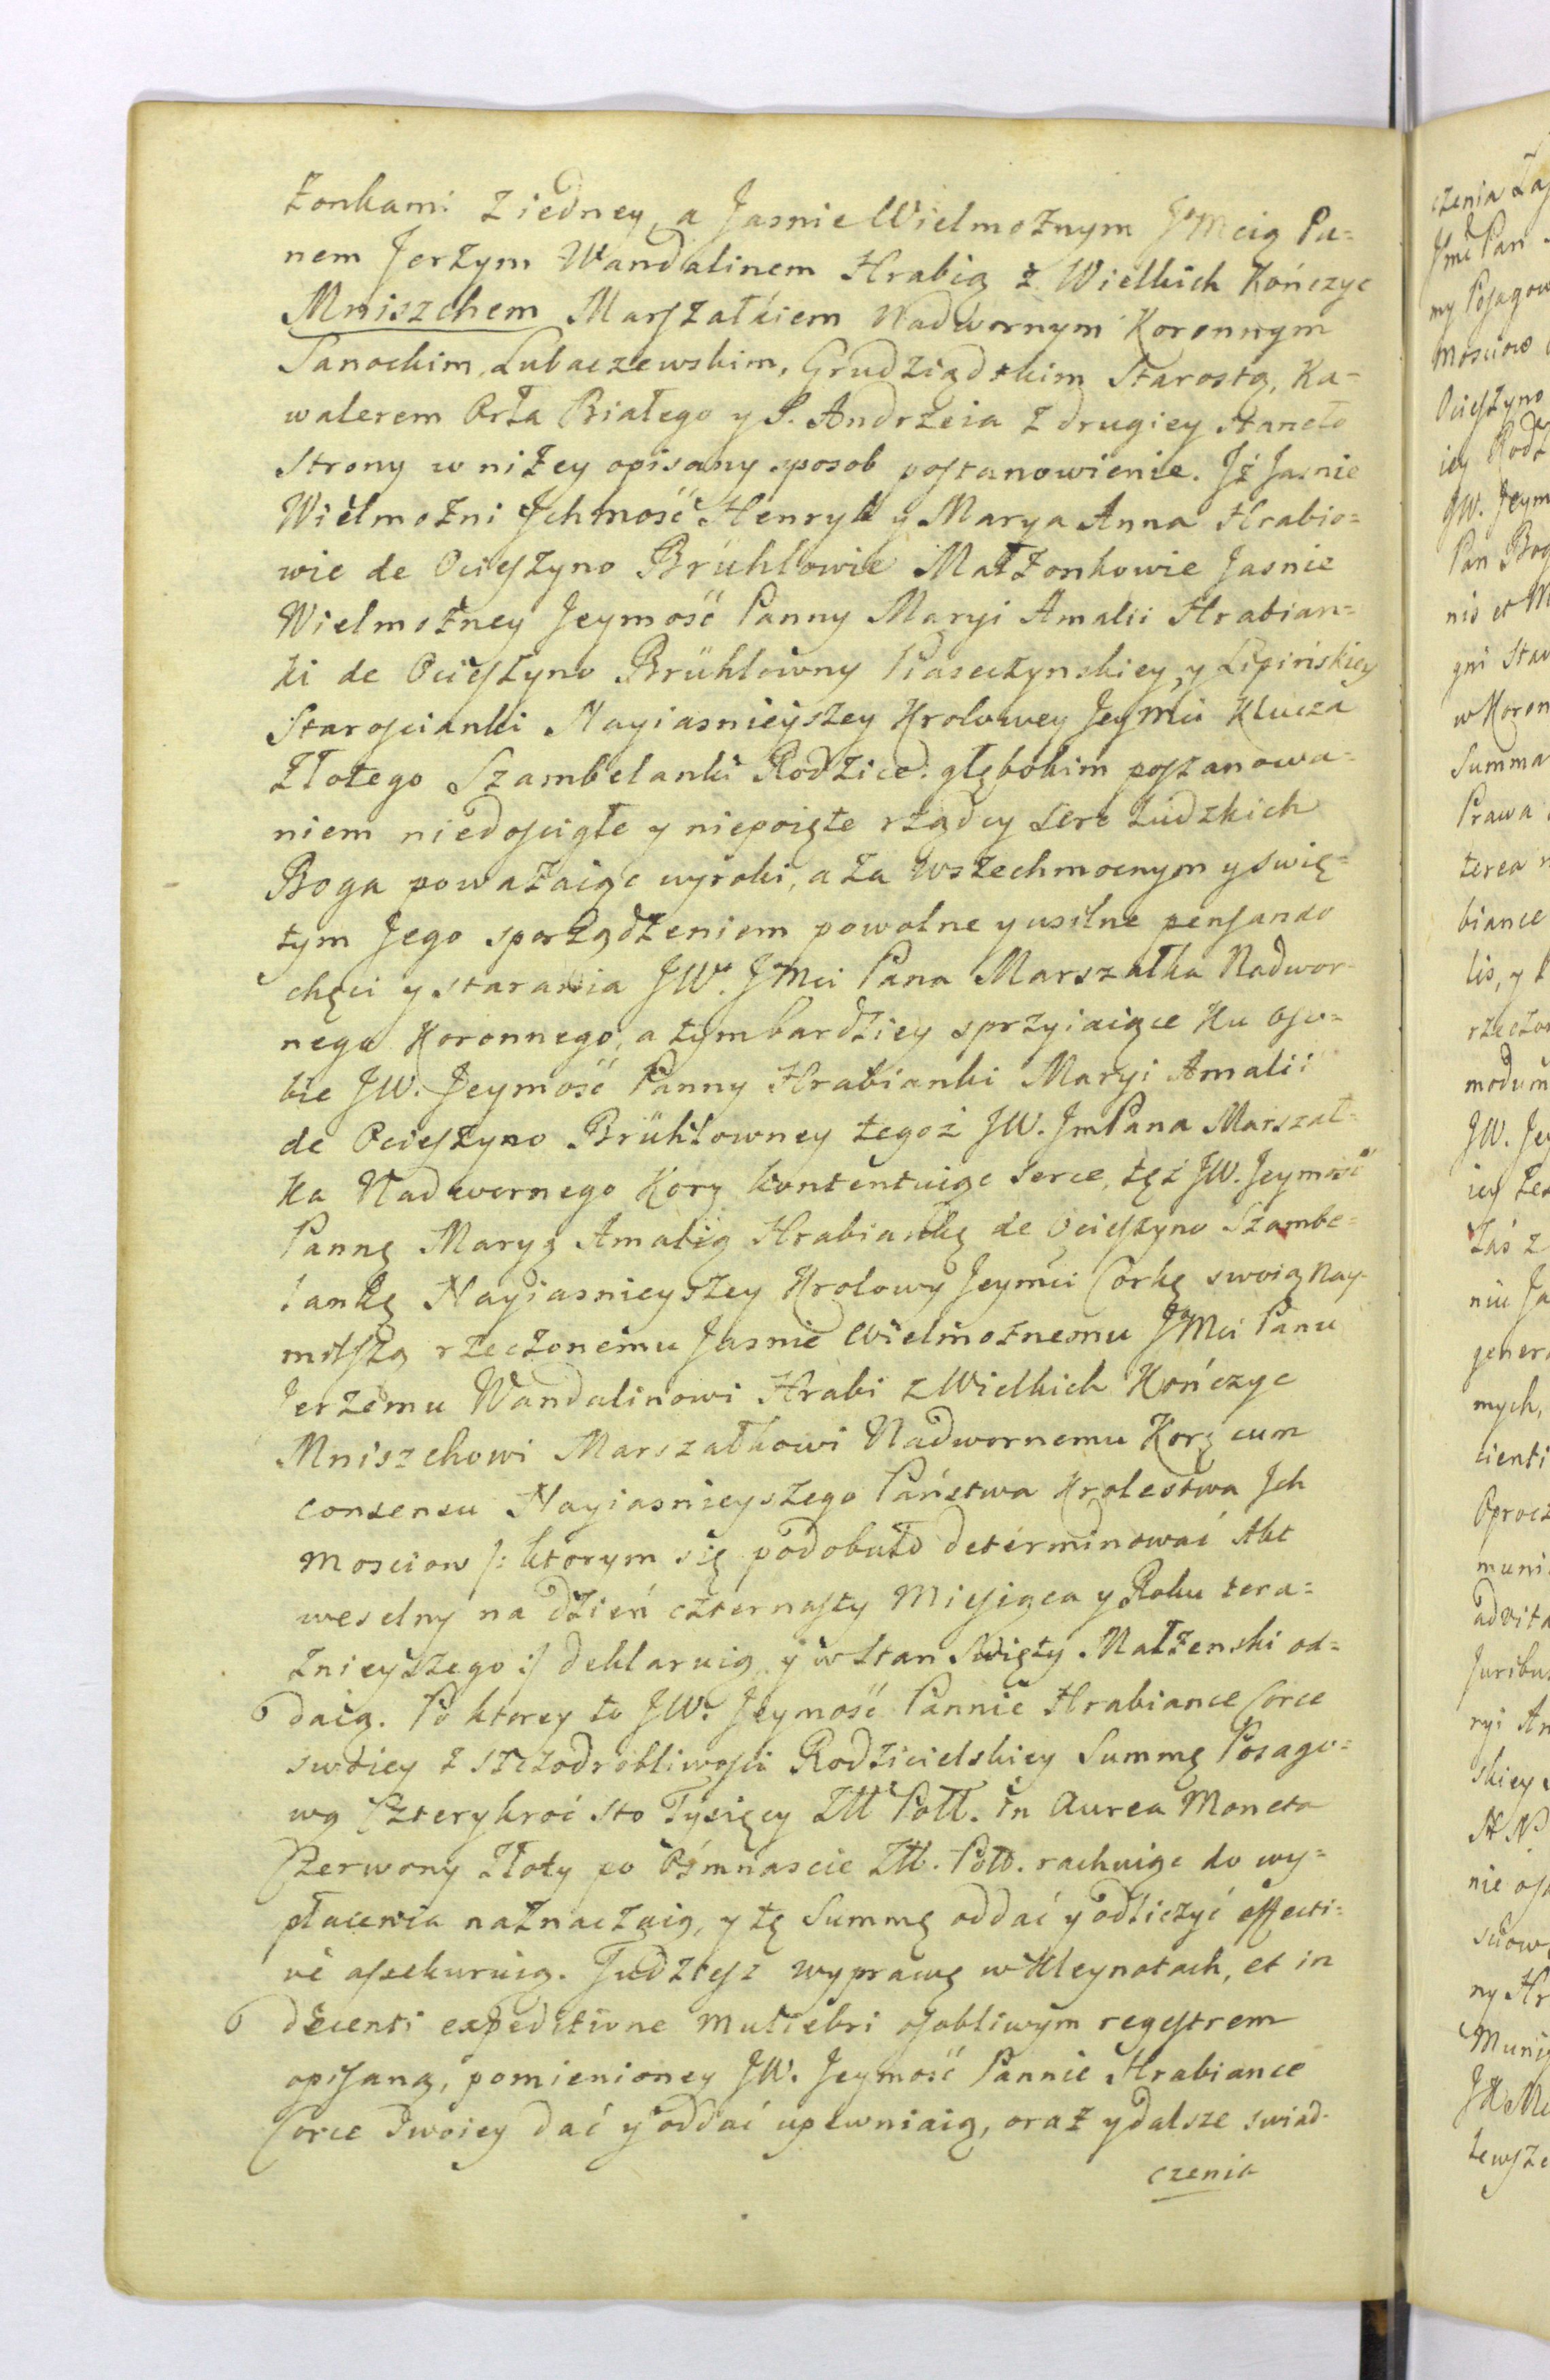 żonkami z iedney, a Jasnie Wielmożnym JMcią Pa=
nem Jerzym Wandalinem Hrabią z Wielkich Kończyc
Mniszchem Marszałkiem Nadwornym Koronnym
Sanockim, Lubaczewskim, Grudziądzkim Starostą, Ka=
walerem Orła Białego y S. Andrzeia z drugiey stanęło
Strony w niżey opisany sposob postanowienie. Iż Jasnie
Wielmożni Ichmość Henryk y Marya Anna Hrabio=
wie de Ocieszyno Brühlowie Małżonkowie Jasnie
Wielmożney Jeymość Panny Maryi Amalii Hrabian=
ki de Ocieszyno Brühlowny Piaseczynskiey, y Lipińskiey
Starościanki Nayiasnieyszey Krolowey Jeymci Klucza
Złotego Szambelanki Rodzice. głębokim poszanowa=
niem niedościgłe y niepoięte rządcy serc Ludzkich
Boga poważaiąc wyroki, a za Wszechmocnym y swię=
tym Jego sporządzeniem powolne y usilne pensando
chęci y starania JW. JMci Pana Marszałka Nadwor=
nego Koronnego, a tym bardziey sprzyiaiące ku oso=
bie JW. Jeymość Panny Hrabianki Maryi Amalii
de Ocieszyno Brühlowney tegoż JW. Jm Pana Marszał=
ka Nadwornego Korą kontentuiąc serce, tęż JW. Jeymość
Pannę Maryą Amalią Hrabiankę de Ocieszyno Szambe=
lankę Nayiasnieyszey Krolowy Jeymci Corkę swoią Nay=
milszą rzeczonemu Jasnie Wielmożnemu JMci Panu
Jerzemu Wandalinowi Hrabi z Wielkich Kończyc
Mniszchowi Marszałkowi Nadwornemu Korą cum
consensu Nayiasnieyszego Państwa Krolestwa Ich
Mosciow /: ktorym się podobało determinować Akt
weselny na dzień czternasty Miesiąca y Roku tera=
znieyszego :/ deklaruią, y w Stan Swięty Małżenski od=
daią. Po ktorey to JW. Jeymość Pannie Hrabiance Corce
swoiey z szczodrobliwości Rodzicielskiey Summę Posago=
wą Czterykroć Sto Tysięcy Zlł Poll. in Aurea Moneta
Czerwony Złoty po Ośmnascie Zlł. Poll. rachuiąc do wy=
płacenia naznaczaią, y tę Summę oddać y odliczyć effecti=
ve assekuruią. Tudziesz wyprawę w Kleynotach, et in
decenti expeditione muliebri osobliwym regestrem
opisaną, pomienioney JW. Jeymość Pannie Hrabiance
Corce Swoiey dać y oddać upewniaią, oraz y dalsze swiad=
czenia